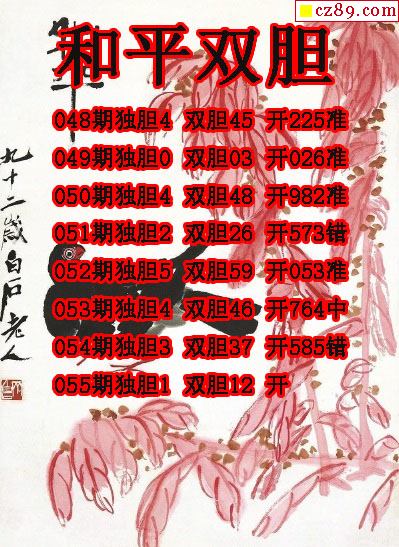 cz89.com
和平双胆
048期独胆4 双胆45 开225准
049期独胆0 双胆03 开026准
050期独胆4 双胆48 开982准
051期独胆2 双胆26 开573错
052期独胆5 双胆59 开053准
053期独胆4 双胆46 开764中
054期独胆3 双胆37 开585错
055期独胆1 双胆12 开
九十二岁白石老人